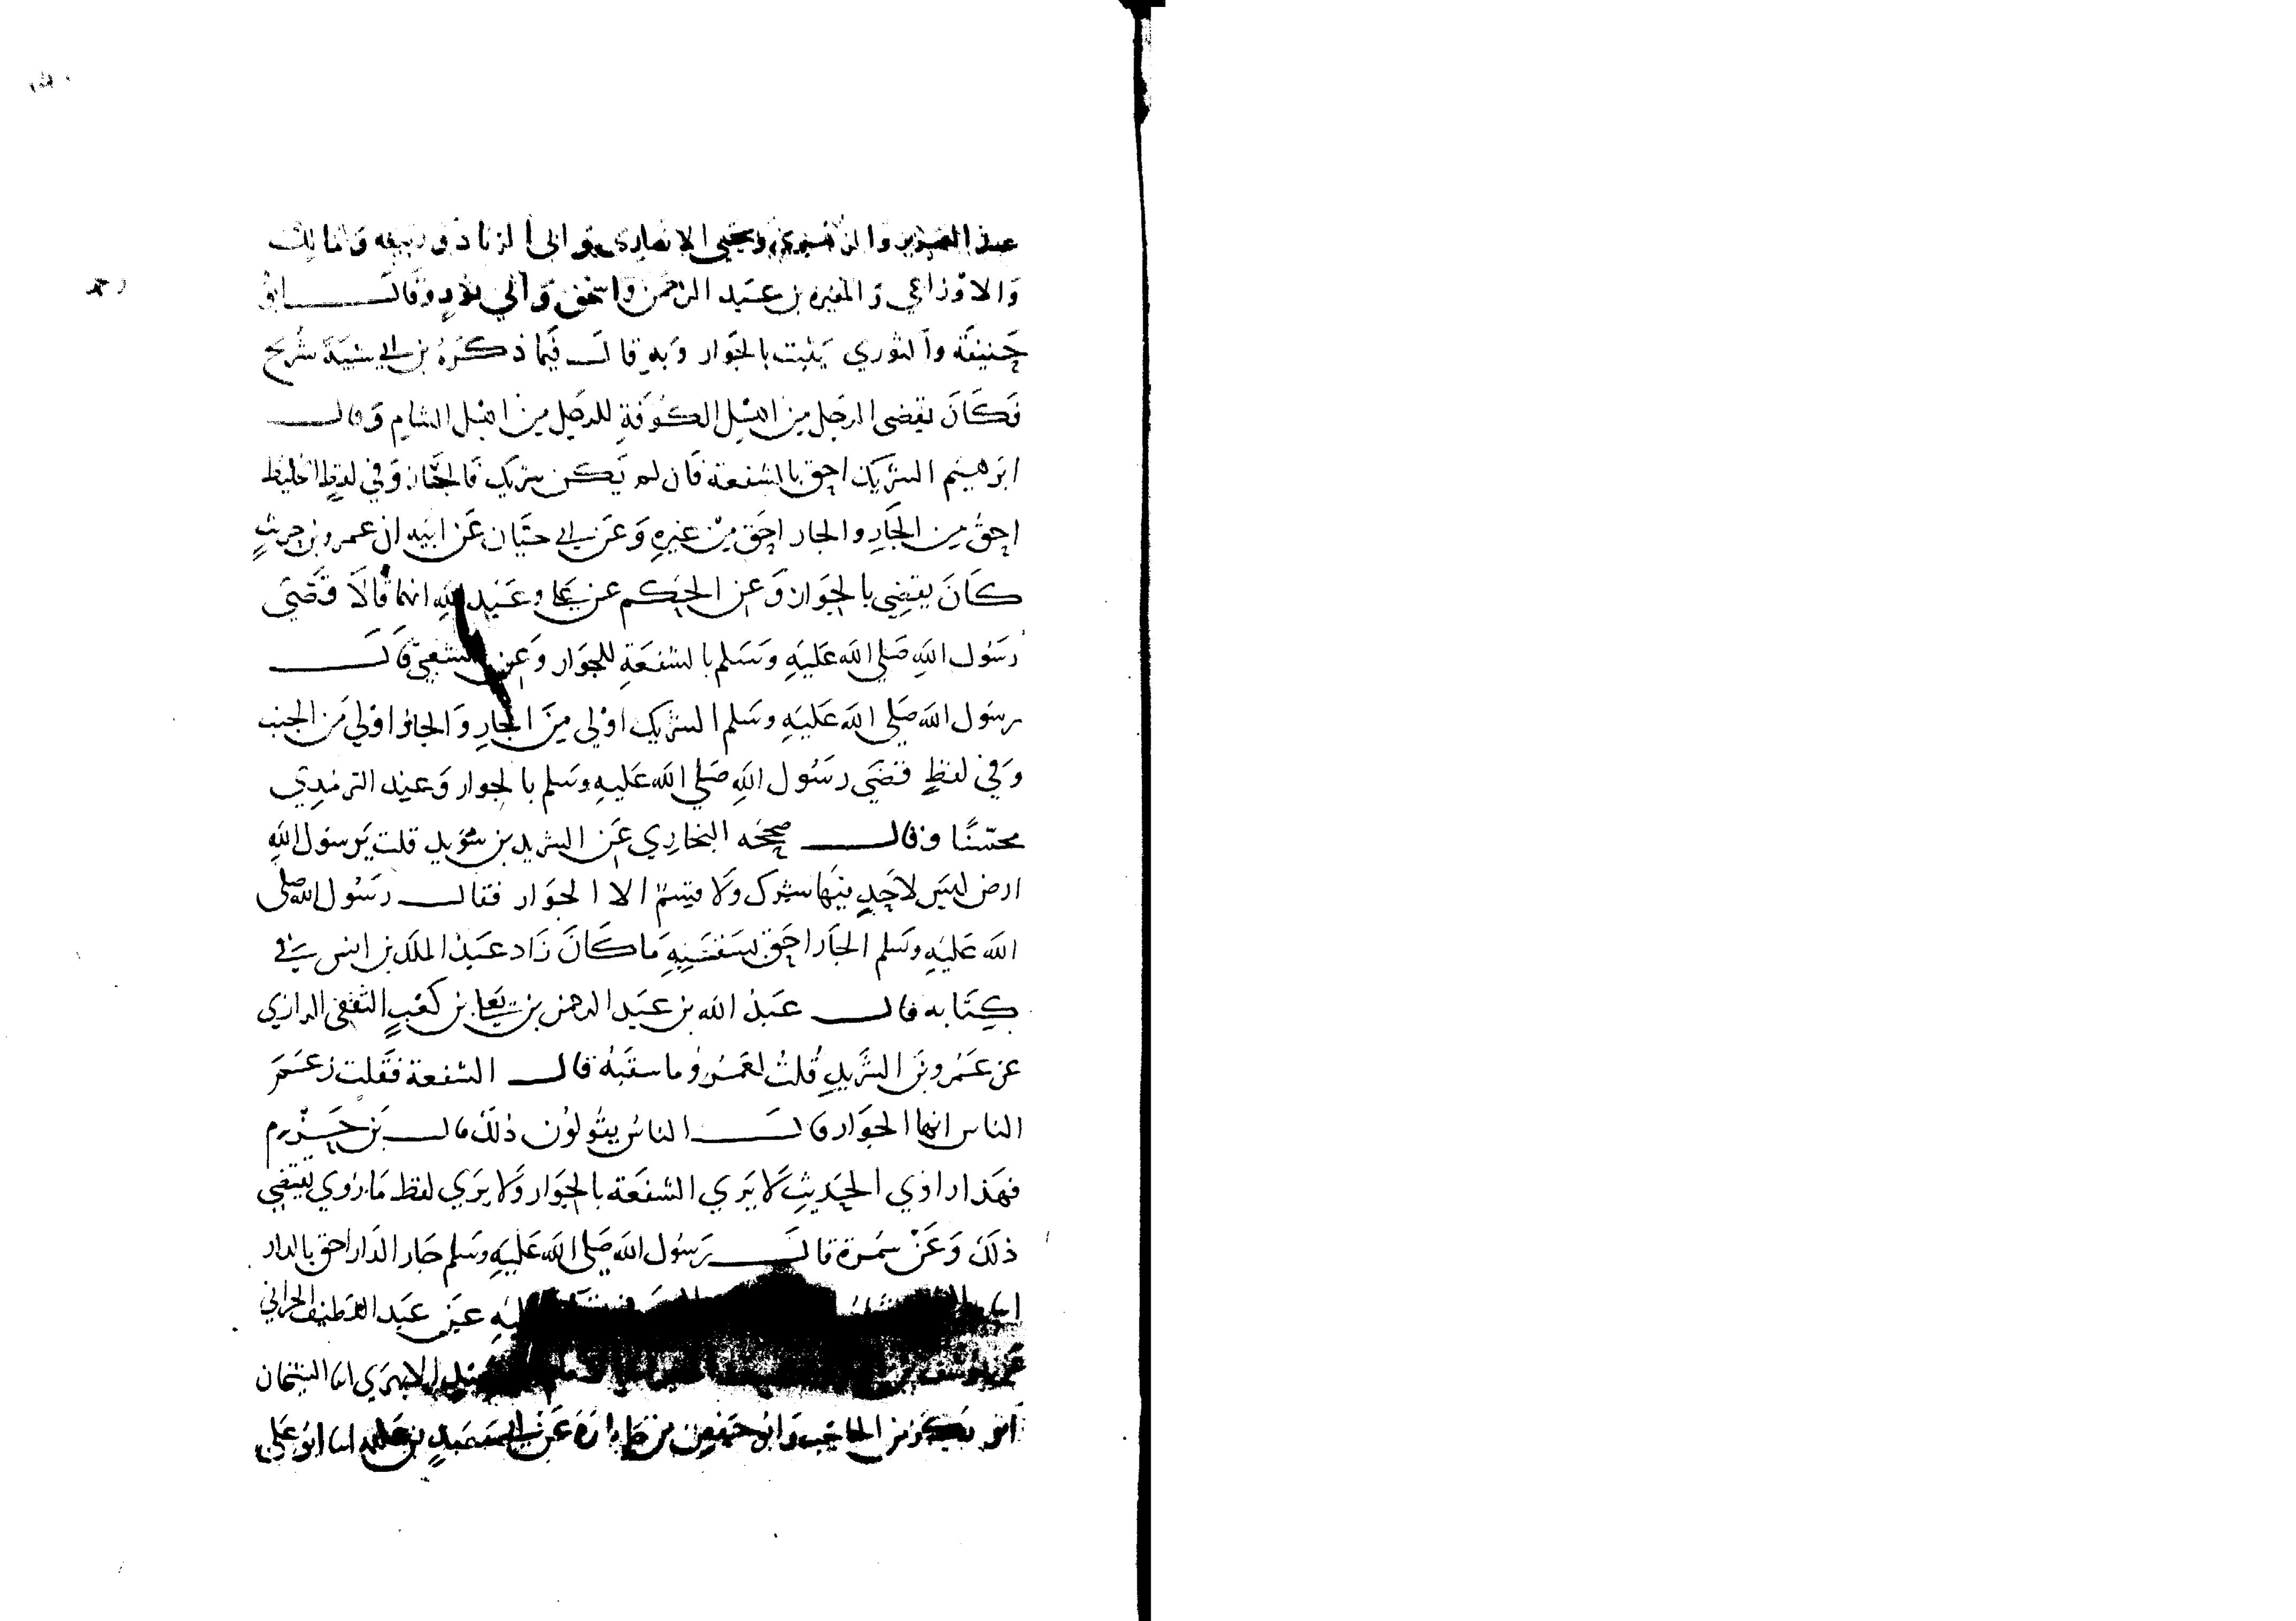 عبد العزيز والزهري ويحيى الانصاري وابي الزناد وربيعة ومالك
والاوزاعي والمغيرة بن عبد الرحمن واسحق وابي ثور وقال ابو
حنيفة والثوري يثبت بالجوار وبه قال فيما ذكره بن ابي شيبة شريح
فكان يقضي الرجل من اهل الكوفة للرجل من اهل الشام وقال
ابرهيم الشريك احق بالشفعة فان لم يكن شريك فالجار وفي لفظ الخليط
احق من الجار والجار احق من غيره وعن ابي حيان عن ابيه ان عمرو بن حريث
كان يقضي بالجوار وعن الحكم عن علي وعبد الله انهما قالا قضى
رسول الله صلي الله عليه وسلم بالشفعة للجوار وعن الشعبي قال
رسول الله صلي الله عليه وسلم الشريك اولي من الجار والجار اولي من الجنب
وفي لفظ قضي رسول الله صلي الله عليه وسلم بالجوار وعند الترمذي
محسنا وقال صححه البخاري عن الشريد بن سويد قلت يرسول الله
ارض ليس لاحد فيها شرك ولا قسم الا الجوار فقال رسول الله صلى
الله عليه وسلم الجار احق بسقبه ما كان زاد عبد الملك بن ايمن في
كتابه قال عبد الله بن عبد الرحمن بن يعلي بن كعب الثقفي الرازي
عن عمرو بن الشريد قلت لعمرو ما سقبه قال الشفعة فقلت زعم
الناس انها الجوار قال الناس يقولون ذلك قال بن حزم
فهذا راوي الحديث لا يري الشفعة بالجوار ولا يري لفظ ما روي يقتضي
ذلك وعن سمرة قال رسول الله صلي الله عليه وسلم جار الدار احق بالدار
عليه عن عبد اللطيف الحراني
الابهري انا الشيخان
ابو بكر بن الحاجب وابو حفص بن عن ابي انا ابو علي